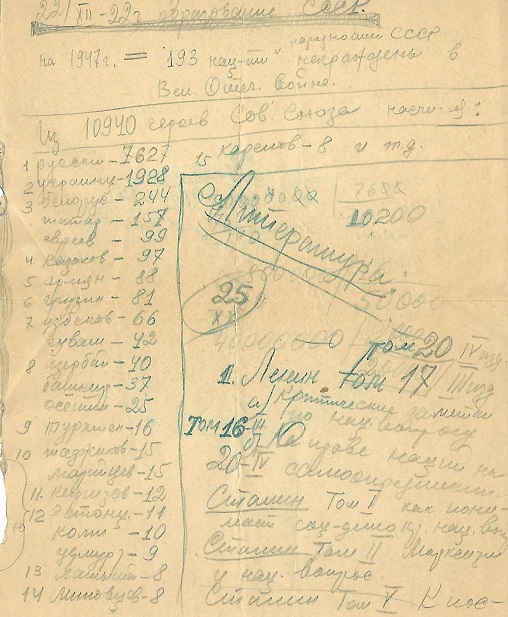 22/XII-22г образование СССР.
на 1947г. = "193 нац-ти" народносте СССР
награждены в
Вел. Отеч. Войне.
Из 10940 героев Сов. Союза насчи-ют:
1 русски-7627
15 карелов-8 и т.д.
2 украинц-1928
3 белорус-244
татар-157
евреев-99
4 казахов-97
5 армян-88
6 грузин-81
7 узбеков-66
чуваш-42
8 азербай-40
башкир-37
осетин-25
9 туркмен-16
10 таджиков-15
марийцев-15
11. киргизов-12
12 эстонц.-11
коми-10
удмурт-9
13 латыш-8
14 литовцев-8
10200
Литература:
50000
25
XX
том 20 IV изд
1. Ленин том 17 III изд
а) Критические заметки
по нац. вопросу
Том 16-III
б) О праве наций на
20-IV самоопределение.
Сталин Том I как пони-
мает соц-демокр. нац. воп
Сталин Том II Марксизм
и нац. вопрос
Сталин Том V К пос-